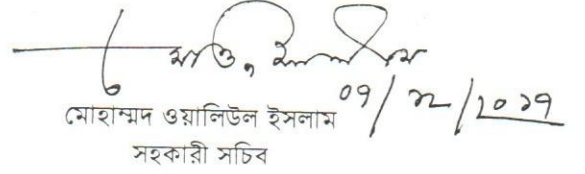 ০৭/১২/২০১৭
মোহাম্মদ ওয়ালিউল ইসলাম
সহকারী সচিব